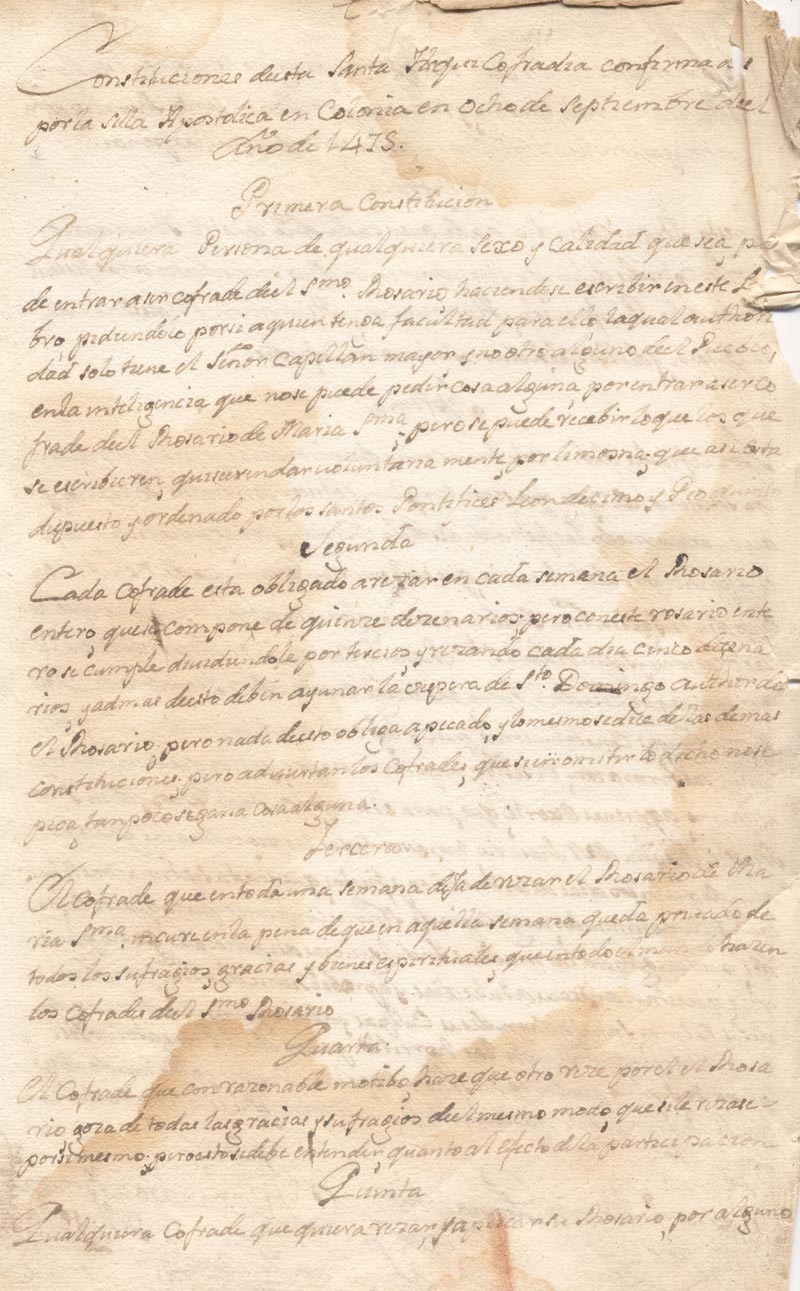 Constituciones desta Santa Cofradia confirmada
por la silla Apostolica en Colonia en ocho de septiembre deel
Año de 1475.
Primera Constitucion
Qualquiera Persona de qualquiera sexo y calidad que sea, pue
de entrar a ser cofrade deel Smo. Rosario haciendose escribir en este Li
bro pidiendolo por si a quien tenga facultad para ello la qual authori
dad solo tiene el Señor Capellan mayor y no otro alguno deel Pueblo,
en la inteligencia que no se puede pedir cosa alguna por entrar a ser co
frade deel Rosario de Maria Sma. pero se puede recebir lo que los que
se escribieren, quisieren dar voluntaria mente por limosna; que asi esta
dispuesto y ordenado por los santos Pontifices Leon decimo y Pio quinto
Segunda
Cada cofrade esta obligado a rezar en cada semana el Rosario
entero, que se compone de quinze dezenarios; pero con este rosario ente
ro se cumple diuidiendole por tercios y rezando cada dia cinco dezena
rios, y ademas desto deben ayunar la vispera de Sto. Domingo author de
el Rosario; pero nada desto obliga a pecado, y lo mesmo se dize de las demas
constituciones, pero aduiertan los Cofrades, que si en omitir lo dicho no se
peca, tanpoco se gana cosa alguna.
Tercera
El cofrade que en toda una semana deja de rezar el Rosario de Ma
ria Sma. incure en la pena de que en aquella semana queda priuado de
todos los sufragios, gracias y bienes espirituales, que en todo el mundo hazen
los Cofrades deel Smo. Rosario
Quarta.
El Cofrade que con razonable motibo, haze que otro reze por el el Rosa
rio goza de todas las gracias y sufragios deel mesmo modo, que si le rezase
por si mesmo; pero esto se debe entender quanto al efecto de la participacion
Quinta
Qualquiera Cofrade que quiera rezar, y aplicar su Rosario, por alguno